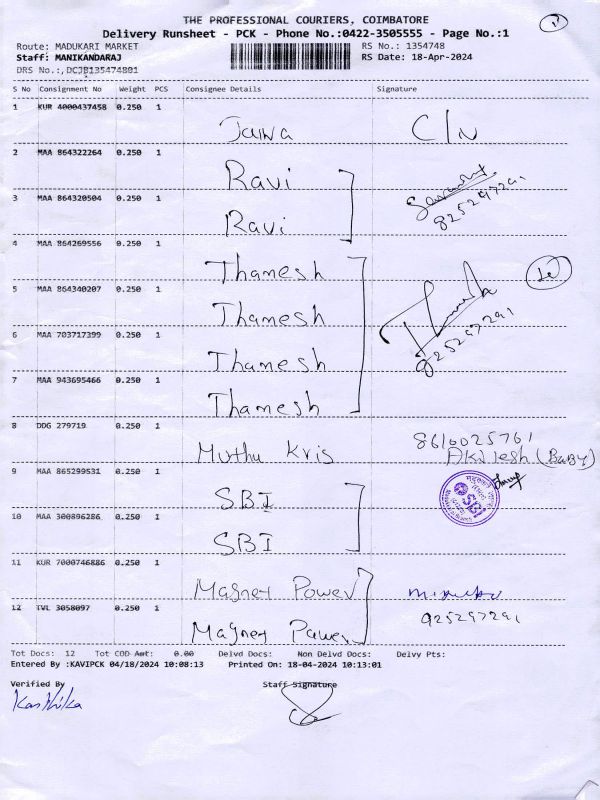 THE PROFESSIONAL COURIERS, COIMBATORE
Delivery Runsheet - PCK - Phone No.:0422-3505555 - Page No.:1
Route: MADUKARI MARKET RS No.: 1354748
Staff: MANIKANDARAJ RS Date: 18-Apr-2024
DRS No.:,DCJB135474801
S No Consignment No Weight PCS Consignee Details Signature
1 KUR 4000437458 0.250 1
C/N
2 MAA 864322264 0.250 1 Ravi
3 MAA 864320504 0.250 1 Ravi
825297291
4 MAA 864269556 0.250 1 Thamesh
5 MAA 864340207 0.250 1 Thamesh
6 MAA 703717399 0.250 1 Thamesh
925297291
7 MAA 943695466 0.250 1 Thamesh
8 DDG 279719 0.250 1 Muthu Kris 8610025761
Akilesh (Baby)
9 MAA 865299531 0.250 1 SBI SBI
10 MAA 300896286 0.250 1 SBI
11 KUR 7000746886 0.250 1 Magnet Power
12 TVL 3058097 0.250 1 Magnet Power 925297291
Tot Docs: 12 Tot COD Amt: 0.00 Delvd Docs: Non Delvd Docs: Delvy Pts:
Entered By :KAVIPCK 04/18/2024 10:08:13 Printed On: 18-04-2024 10:13:01
Verified By Staff Signature
Karthika